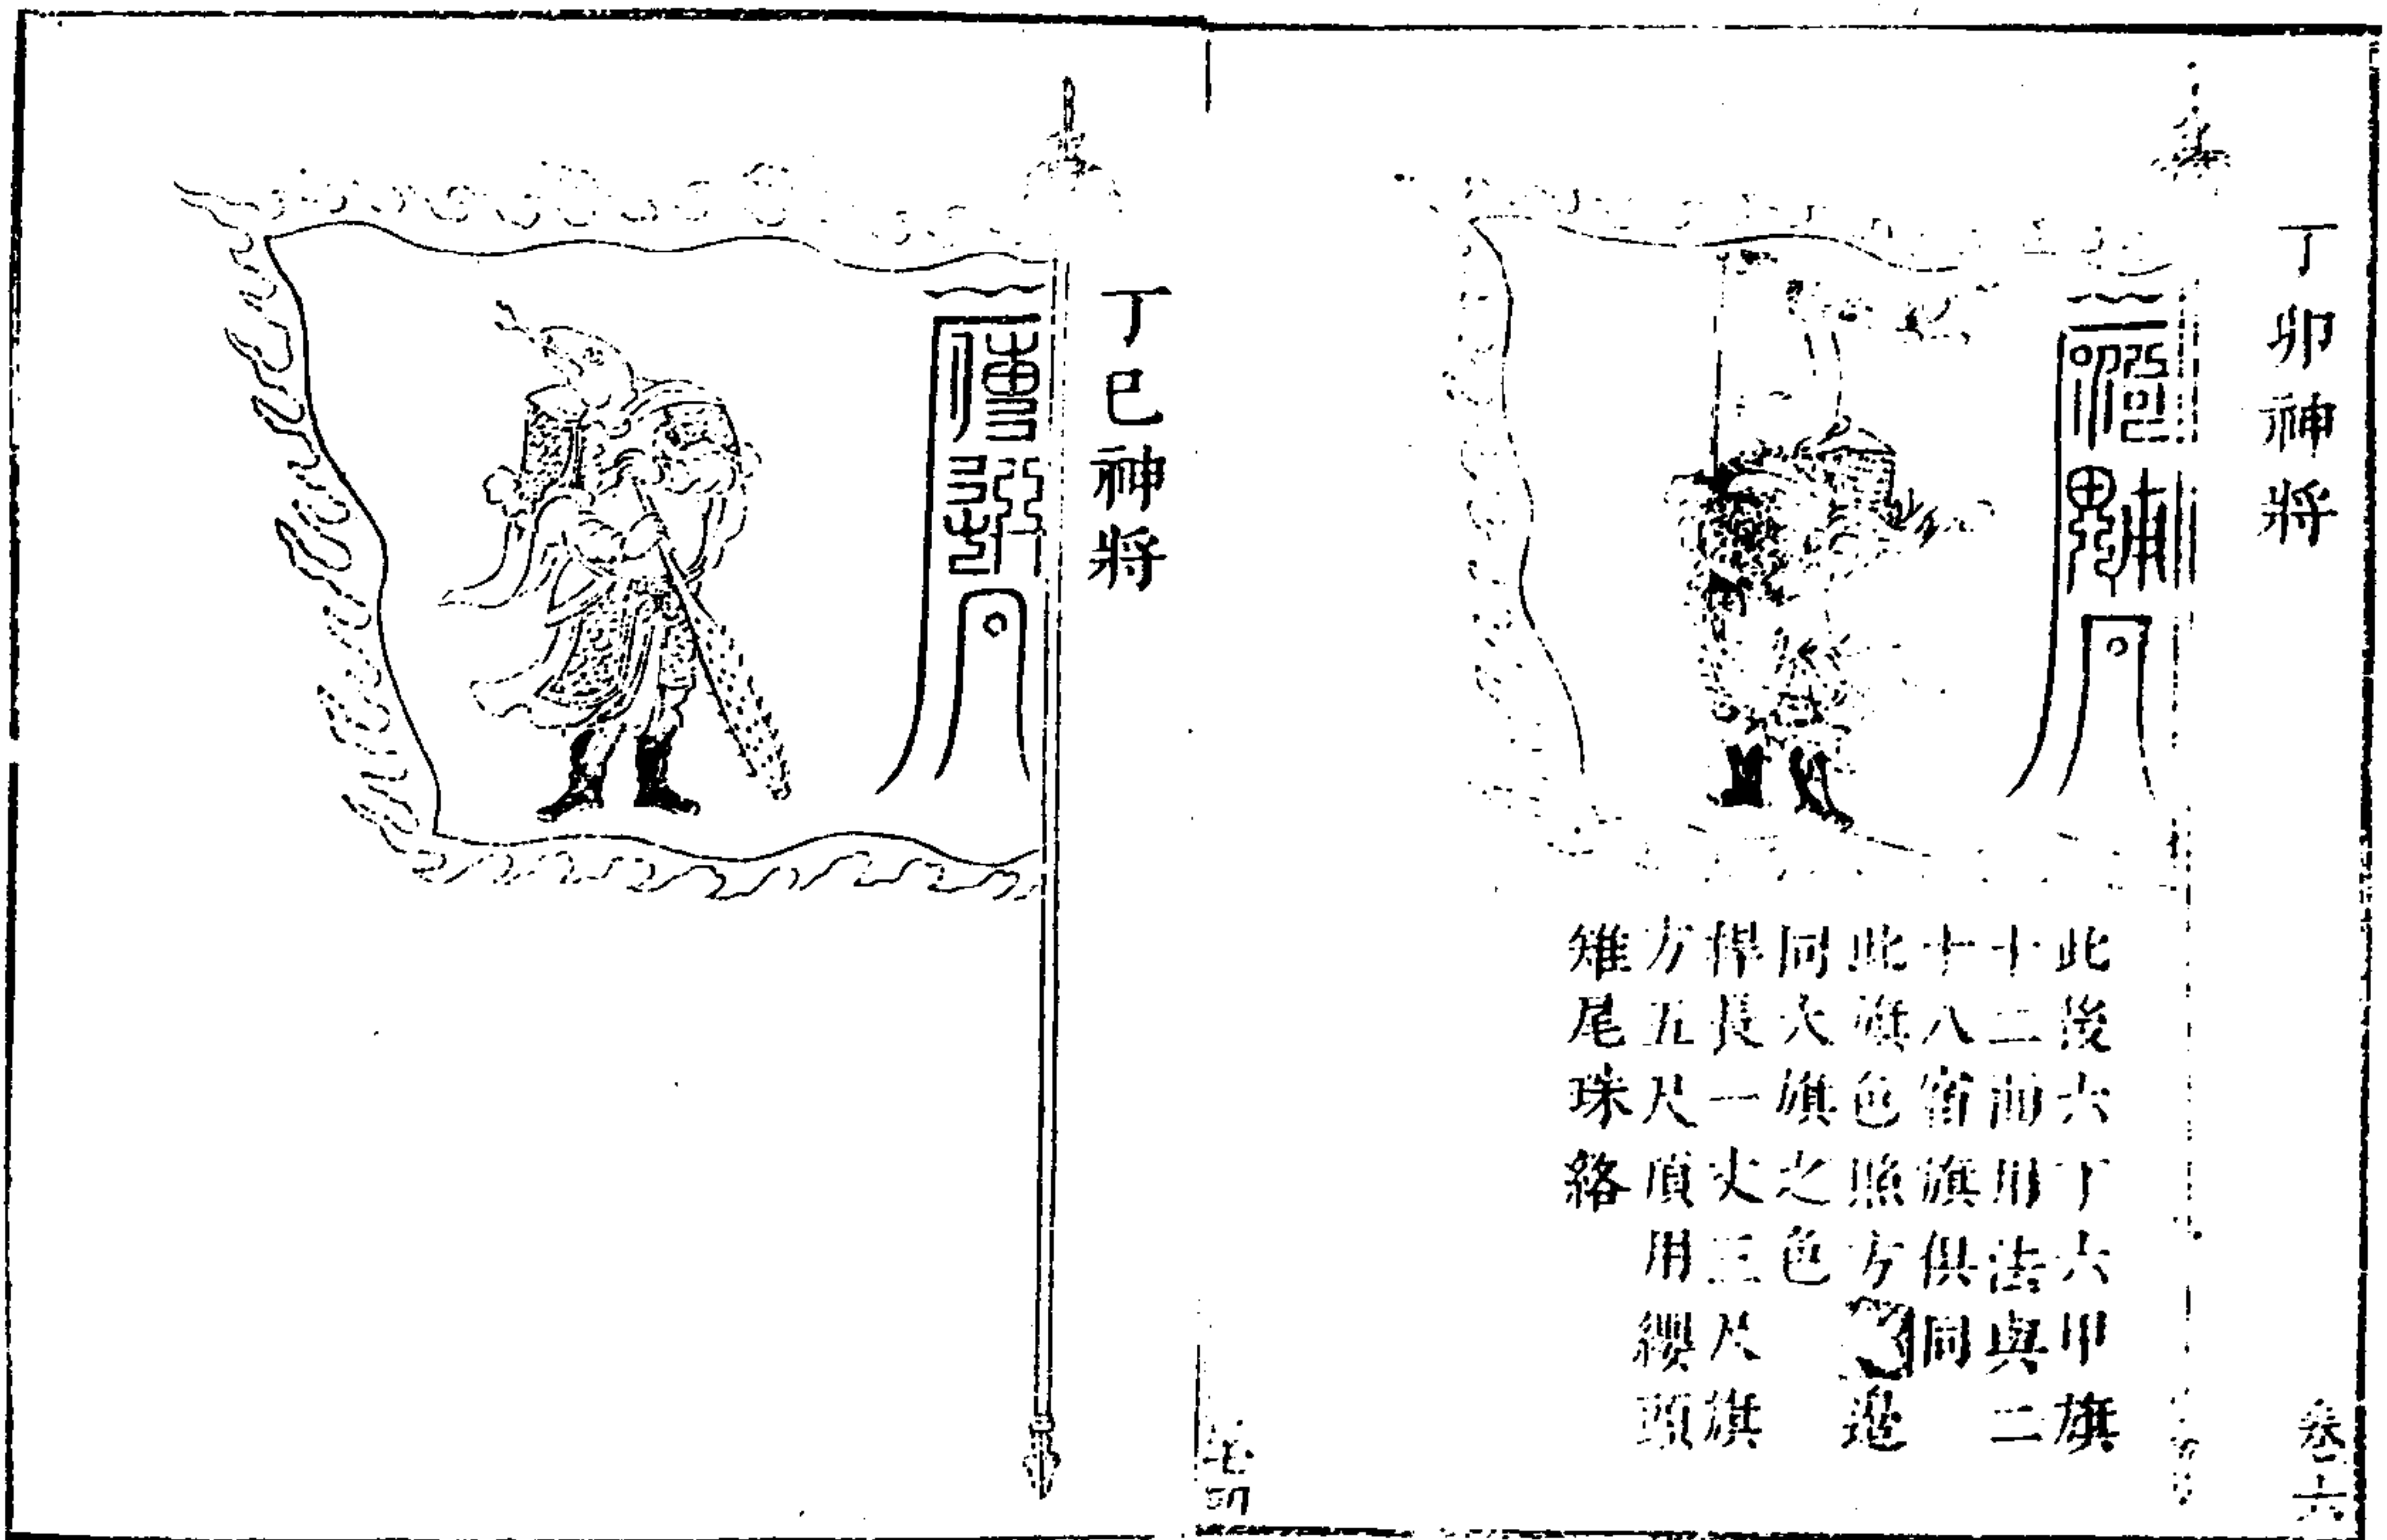 丁卯神將
此後六丁六甲旗
十二面用法與二
十八宿旗俱同
此旗色照方邊
同大旗之色
桿長一丈三尺旗
方五尺頂用纓頭
雉尾珠絡
卷六
丁巳神將